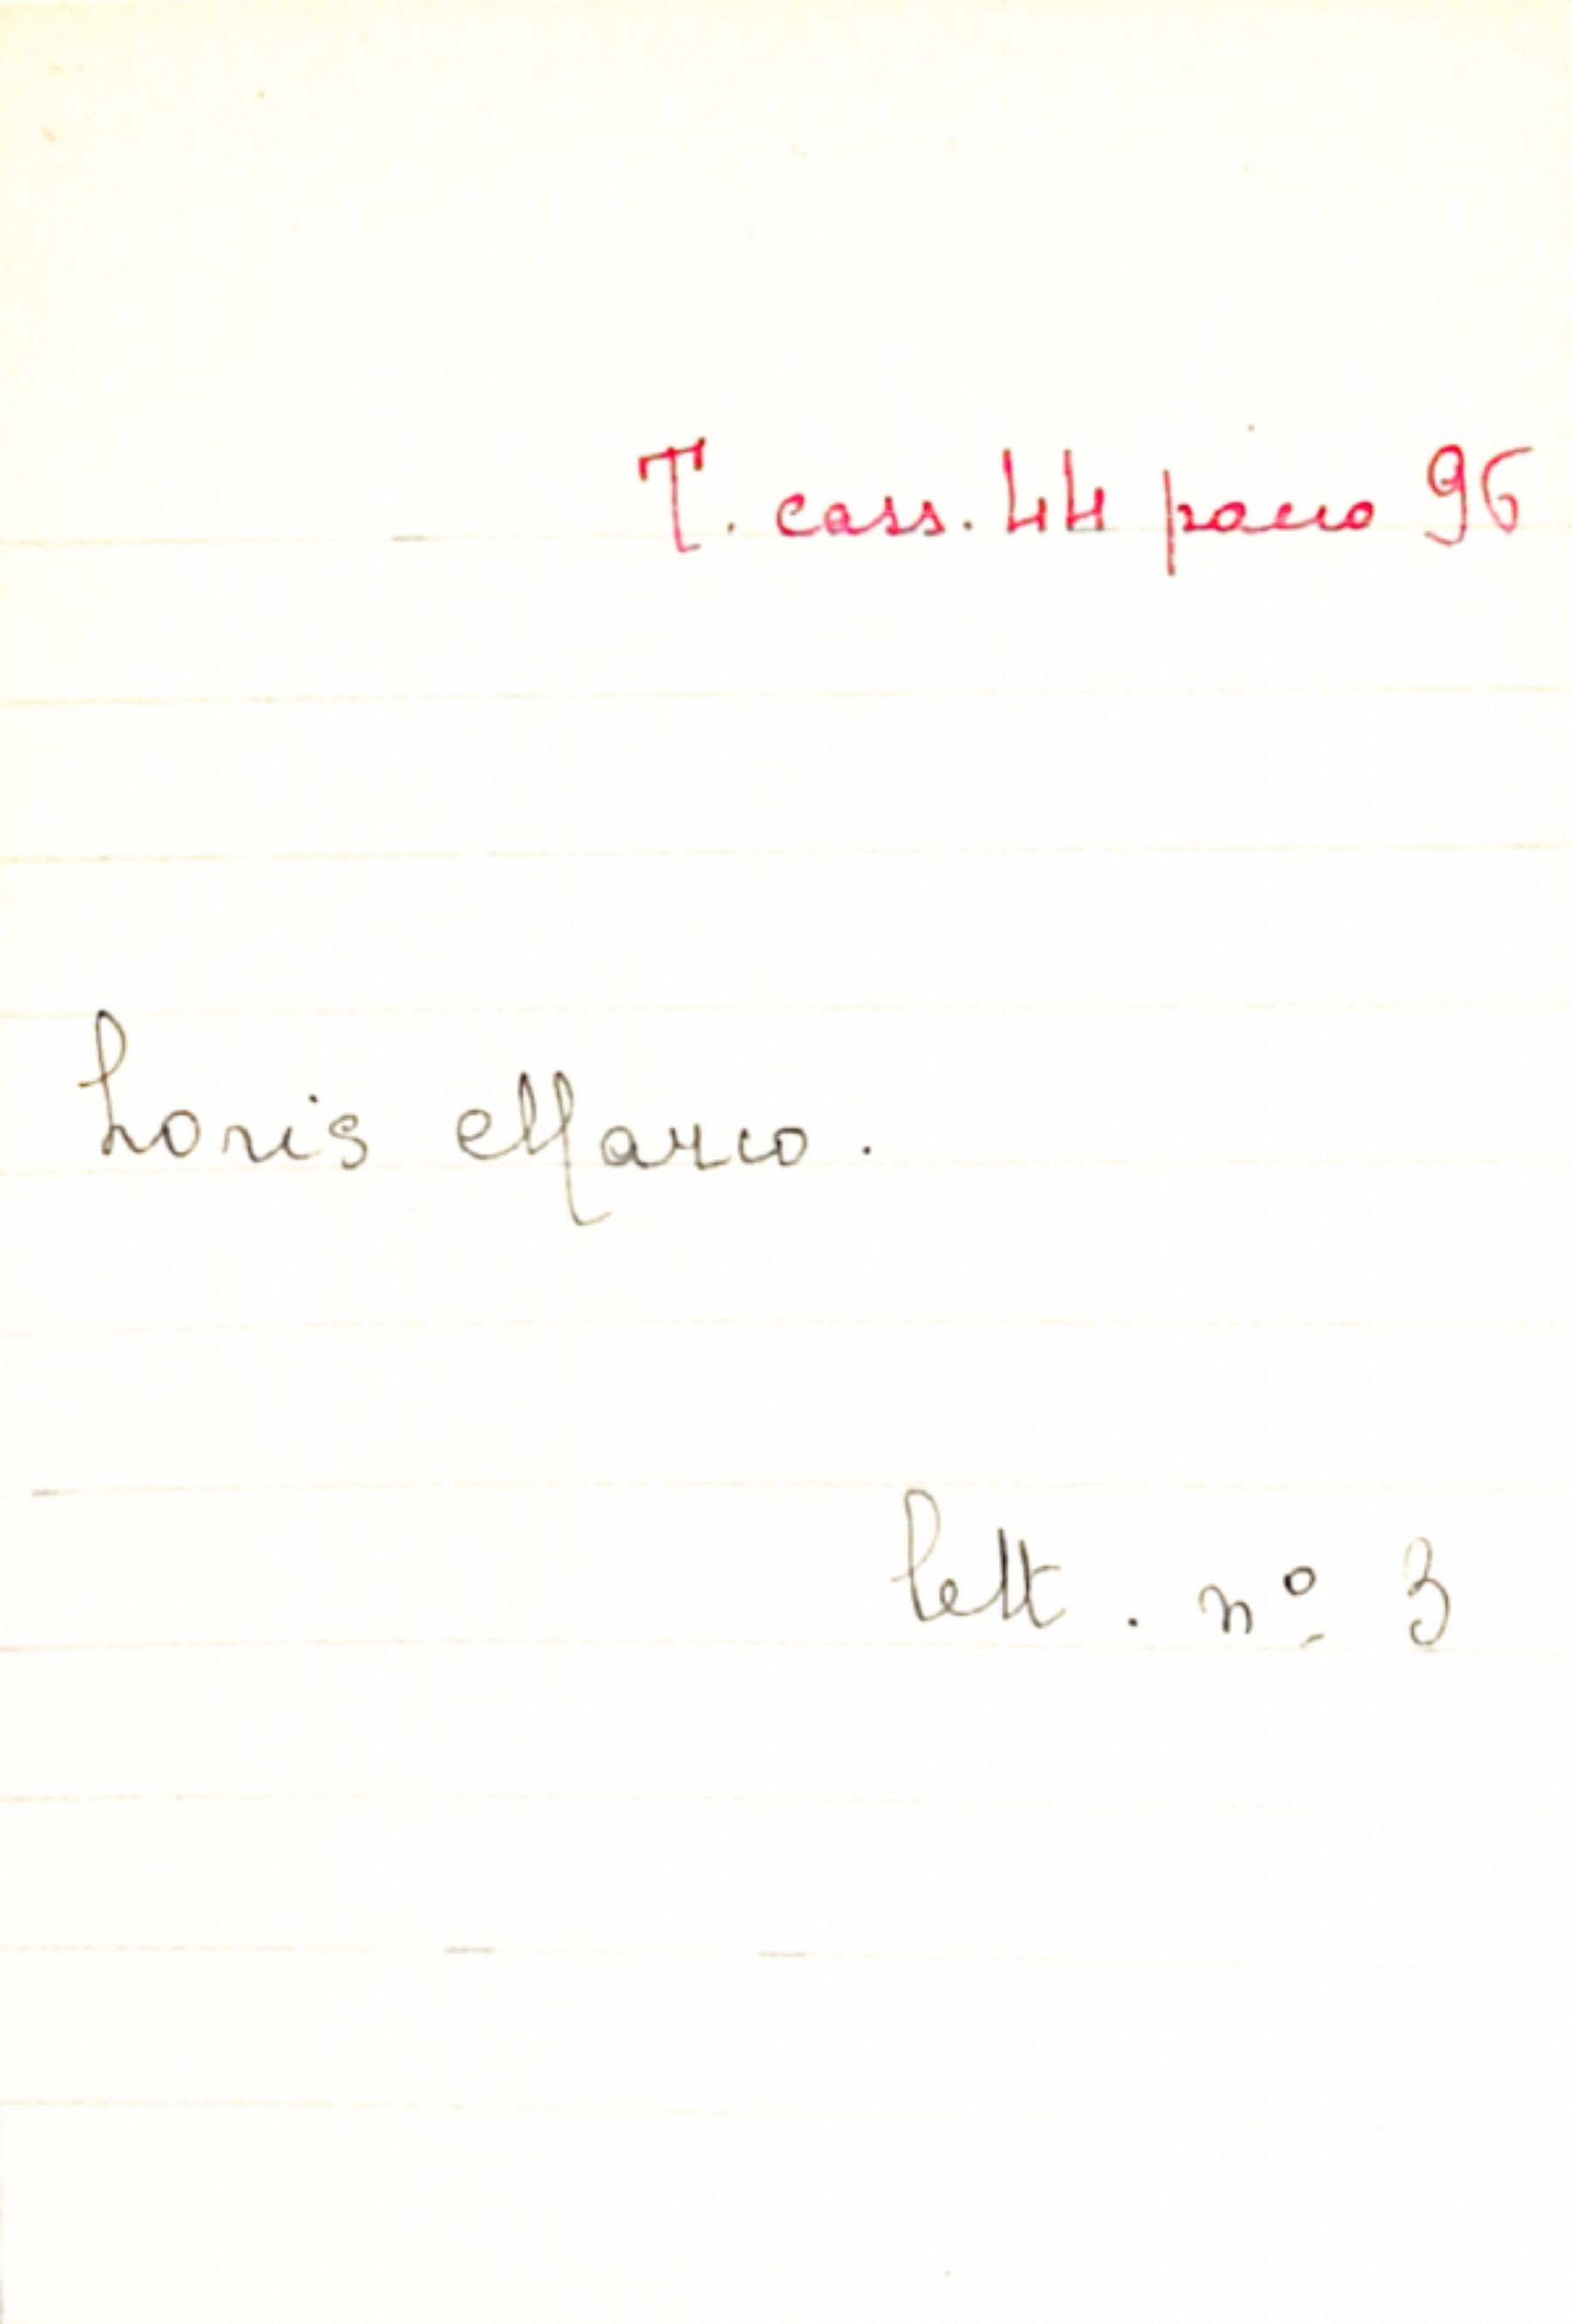 T. cass. 44 pacco 96
Loris Marco.
lett. nº 3